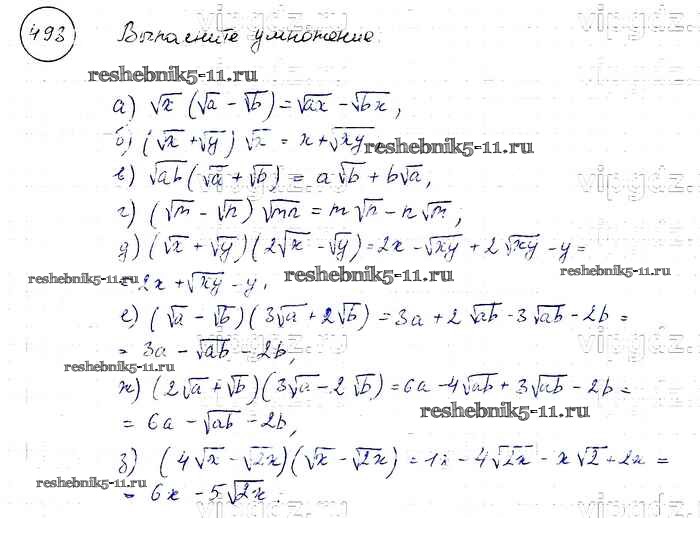 493 Выполните умножение
vipgdz.ru
reshebnik5-11.ru
а) √x (√a - √b) = √ax - √bx,
б) (√x + √y) √x = x + √xy,
reshebnik5-11.ru
в) √ab (√a + √b) = a√b + b√a,
vipgdz.ru
г) (√m - √n) √mn = m√n - n√m,
д) (√x + √y)(2√x - √y) = 2x - √xy + 2√xy - y =
reshebnik5-11.ru
= 2x + √xy - y,
reshebnik5-11.ru
vipgdz.ru
е) (√a - √b)(3√a + 2√b) = 3a + 2√ab - 3√ab - 2b =
= 3a - √ab - 2b,
vipgdz.ru
reshebnik5-11.ru
ж) (2√a + √b)(3√a - 2√b) = 6a - 4√ab + 3√ab - 2b =
= 6a - √ab - 2b,
reshebnik5-11.ru
vipgdz.ru
з) (4√x - √2x)(√x - √2x) = - 4√2x - x√2 + 2x =
reshebnik5-11.ru
= 6x - 5√2x.
vipgdz.ru